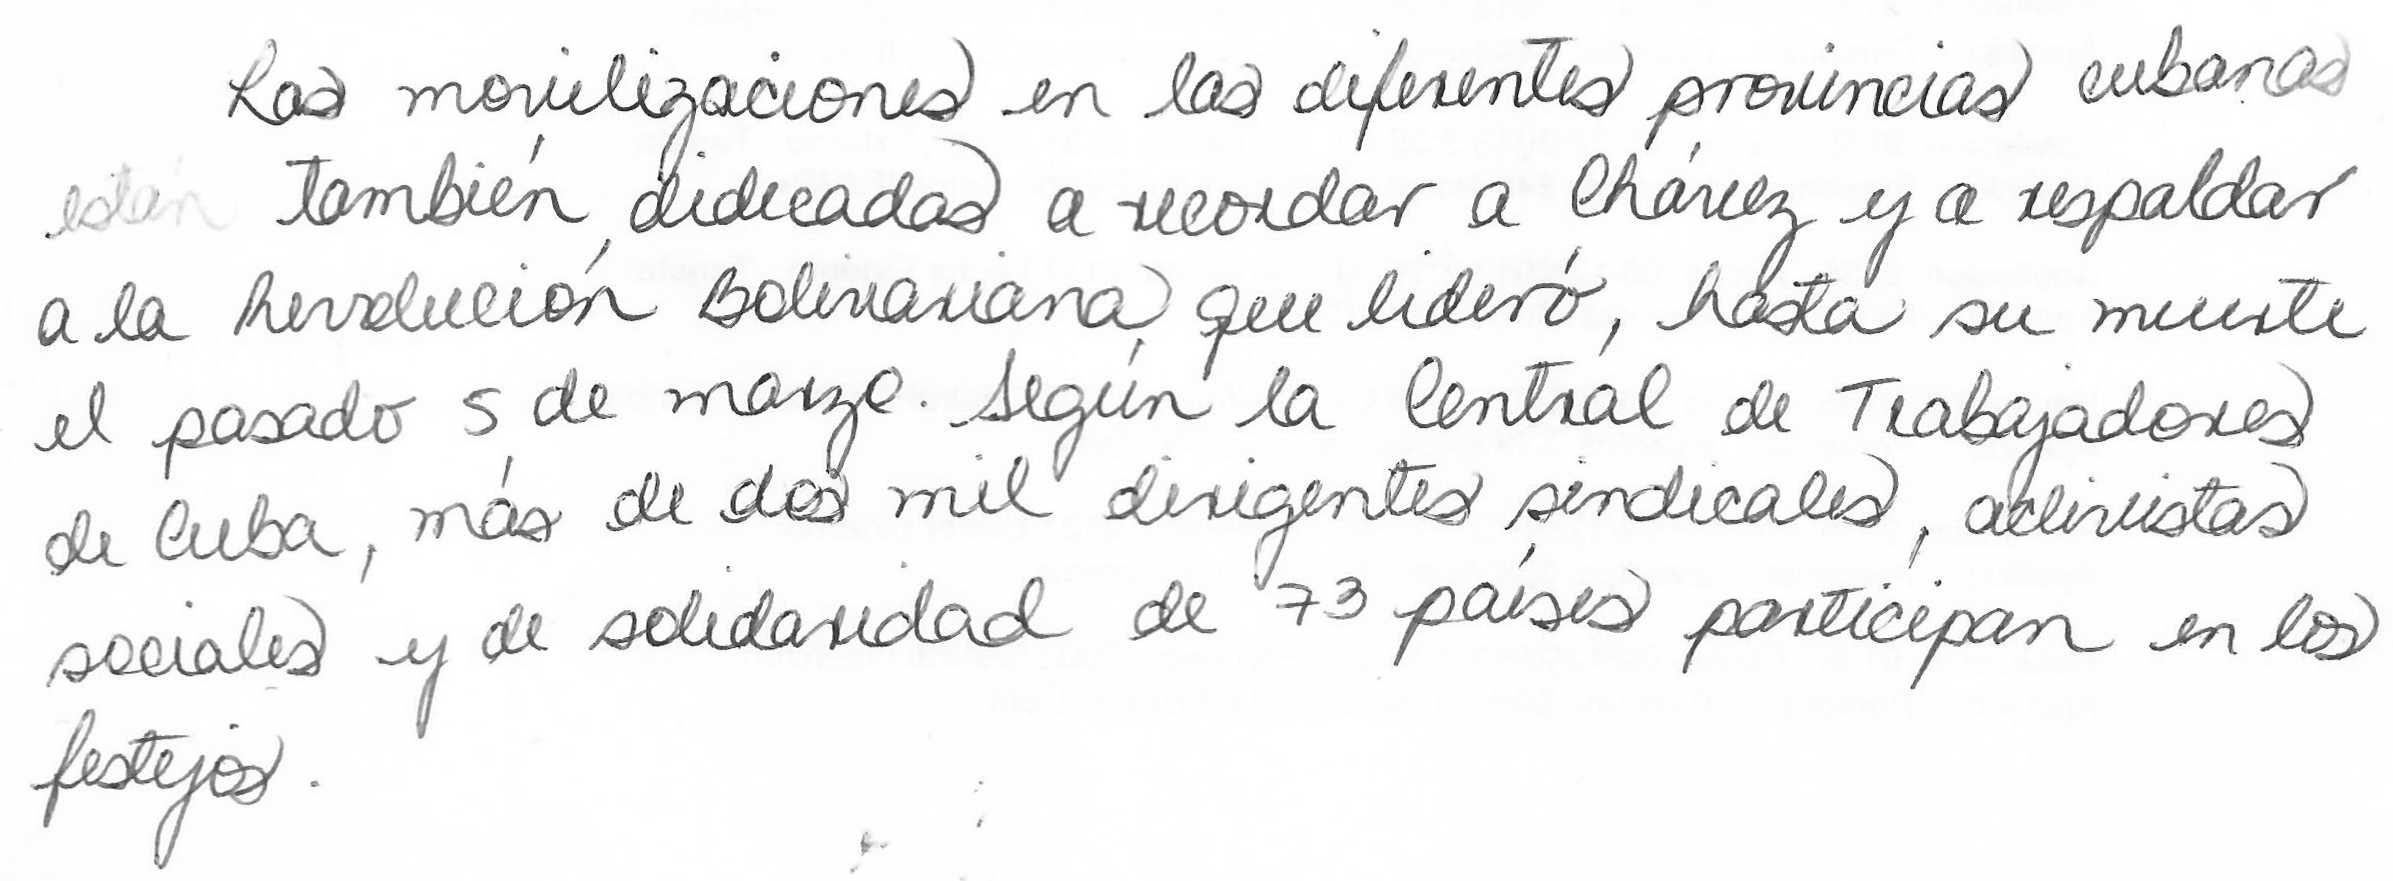 Las movilizaciones en las diferentes provincias cubanas
están también didicadas a recordar a Chávez y a respaldar
a la Revolución Bolivariana que lideró, hasta su muerte
el pasado 5 de marzo. Según la Central de Trabajadores
de Cuba, más de dos mil dirigentes sindicales, activistas
sociales y de solidaridad de 73 países participan en los
festejos.